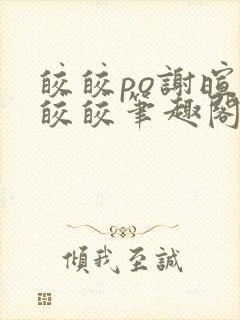 皎皎po謝暄
皎皎筆趣閣
傾我至誠